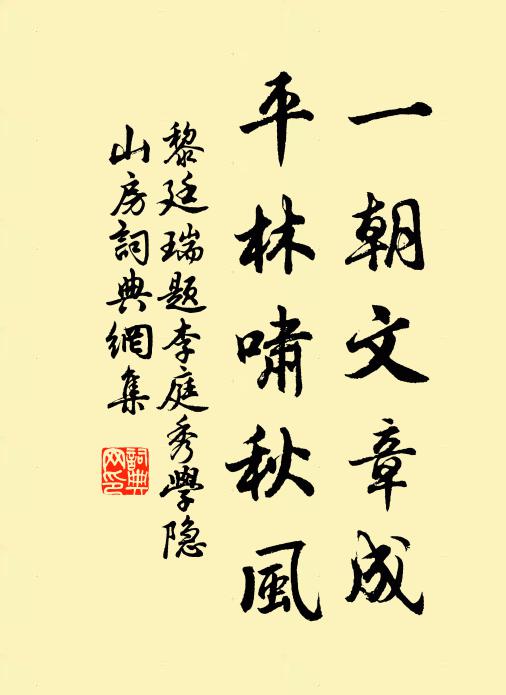 一朝文章成
平林啸秋風
黎廷瑞题李庭秀學隐
山房詞典網集
詞典網印